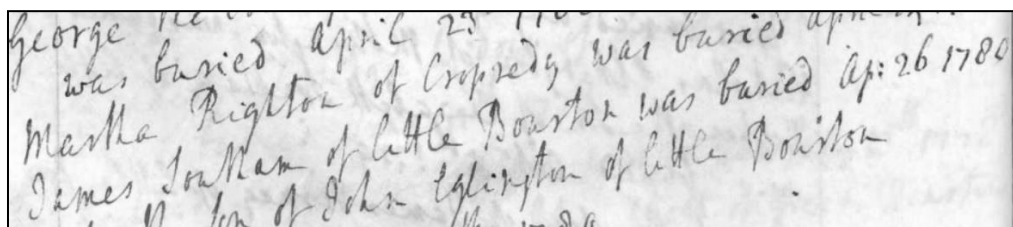 George
was buried April 23
Martha Righton of Cropredy was buried
James Southam of little Bourton was buried Ap: 26 1780
son of John Eglington of little Bourton